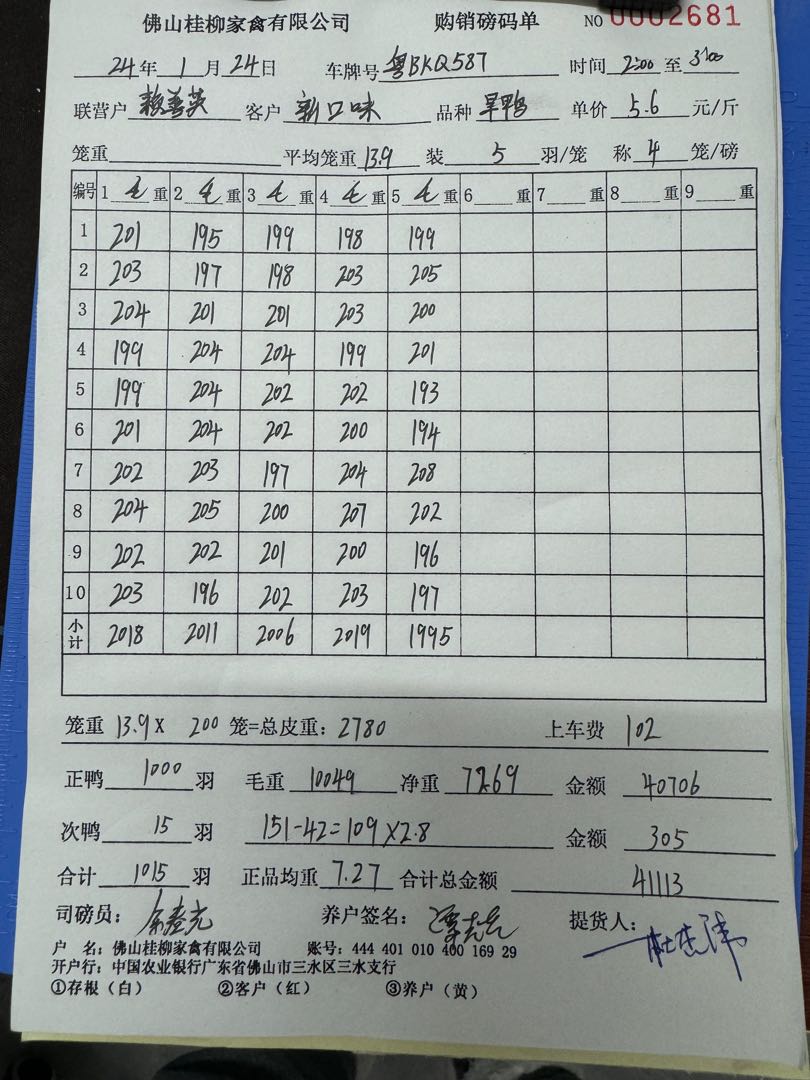 佛山桂柳家禽有限公司 购销磅码单 NO 0002681
24年 1月 24日 车牌号 粤BKQ587 时间 2:00 至 3:00
联营户 赖善英 客户 新口味 品种 旱鸭 单价 5.6 元/斤
笼重 平均笼重 13.9 装 5 羽/笼 称 4 笼/磅
编号 1 毛 重 2 毛 重 3 毛 重 4 毛 重 5 毛 重 6 重 7 重 8 重 9 重
1 201 195 199 198 199
2 203 197 198 203 205
3 204 201 201 203 200
4 199 204 204 199 201
5 199 204 202 202 193
6 201 204 202 200 194
7 202 203 197 204 208
8 204 205 200 207 202
9 202 202 201 200 196
10 203 196 202 203 197
小计 2018 2011 2006 2019 1995
笼重 13.9 X 200 笼=总皮重: 2780 上车费 102
正鸭 1000 羽 毛重 10049 净重 7269 金额 40706
次鸭 15 羽 151-42=109×2.8 金额 305
合计 1015 羽 正品均重 7.27 合计总金额 41113
司磅员: 养户签名: 提货人:
户 名: 佛山桂柳家禽有限公司 账号: 444 401 010 400 169 29
开户行: 中国农业银行广东省佛山市三水区三水支行
①存根（白） ②客户（红） ③养户（黄）